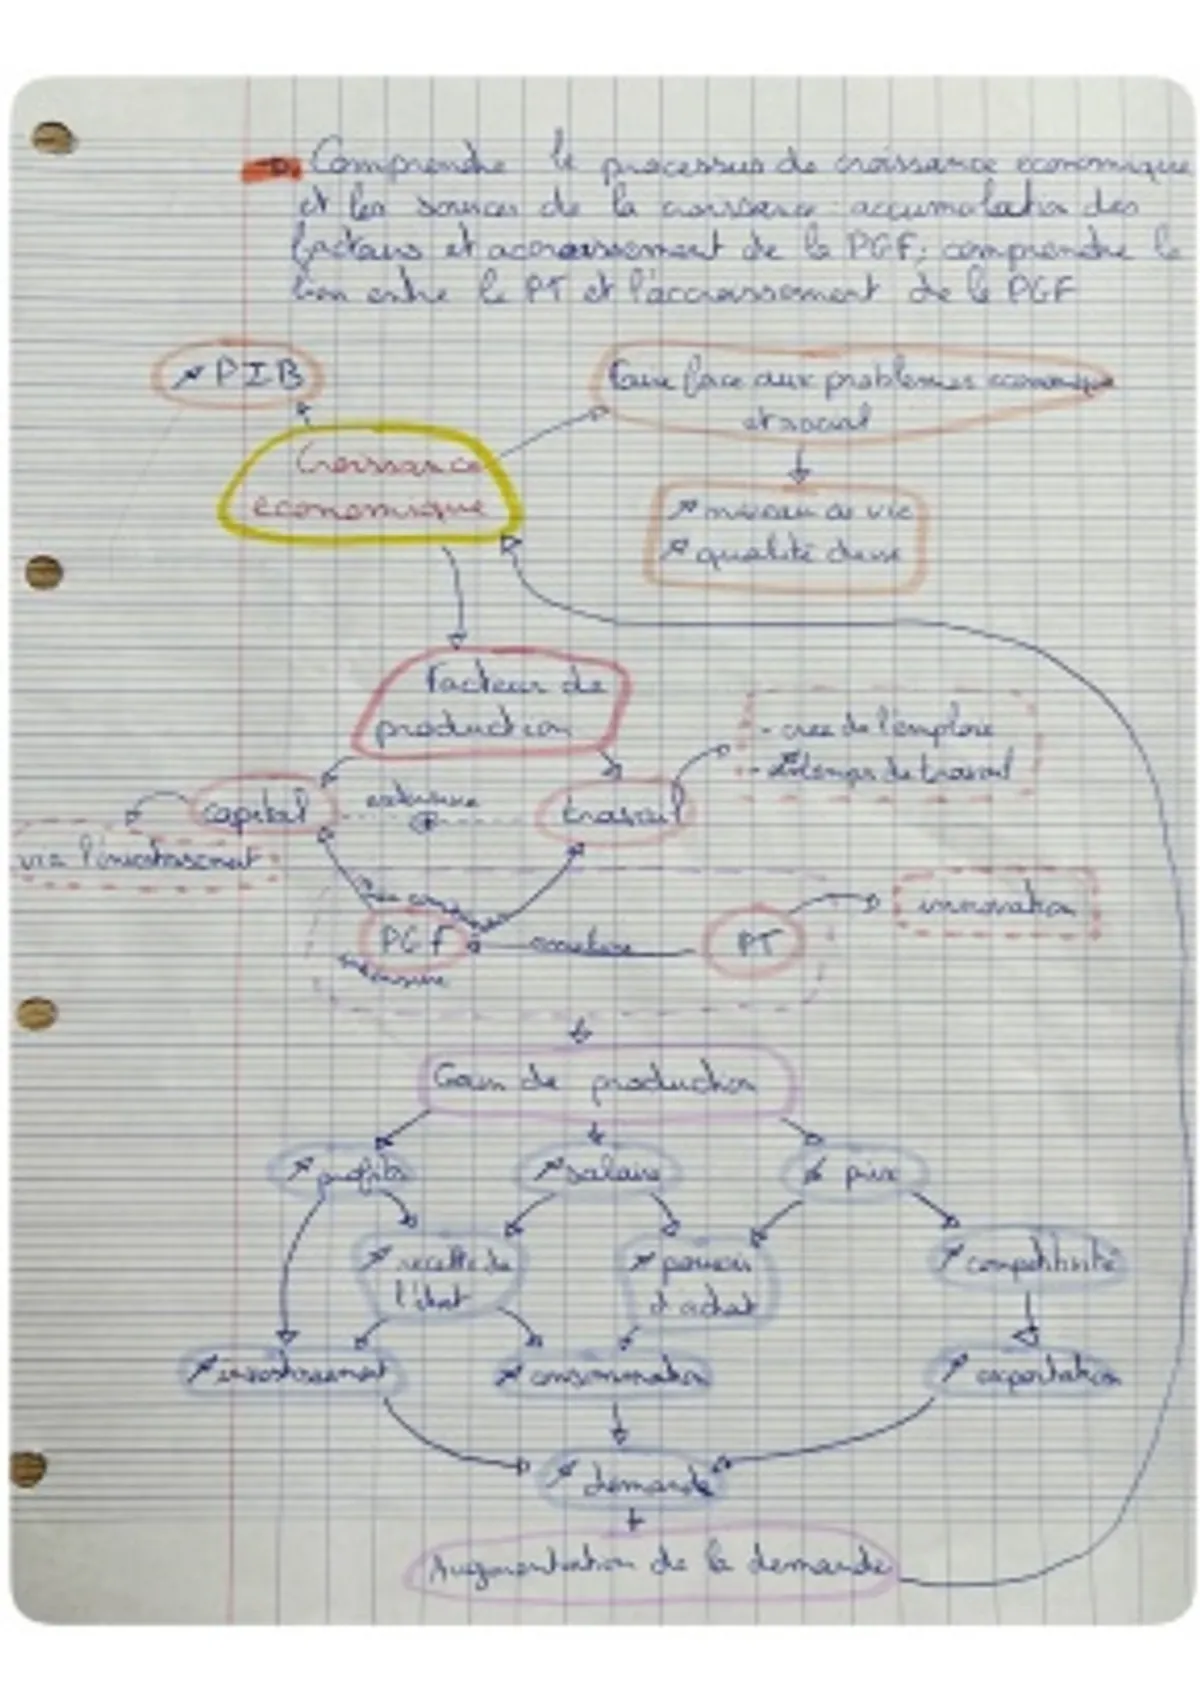 Comprendre le processus de croissance economique
et les sources de la croissance : accumulation des
facteurs et accroissement de la PGF ; comprendre le
lien entre le PT et l'accroissement de la PGF
↗ PIB
Faire face aux problemes economique
et social
Croissance
economique
↗ niveau de vie
↗ qualité de vie
Facteur de
production
- cree de l'emploie
- temps de travail
capital
extensive
travail
via l'investissement
innovation
PGF
PT
intensive
Gain de production
↗ profits
↗ salaire
↘ prix
↗ recette de
l'état
↗ pouvoir
d'achat
↗ compétitivité
↗ investissement
↗ consommation
↗ exportation
↗ demande
Augmentation de la demande